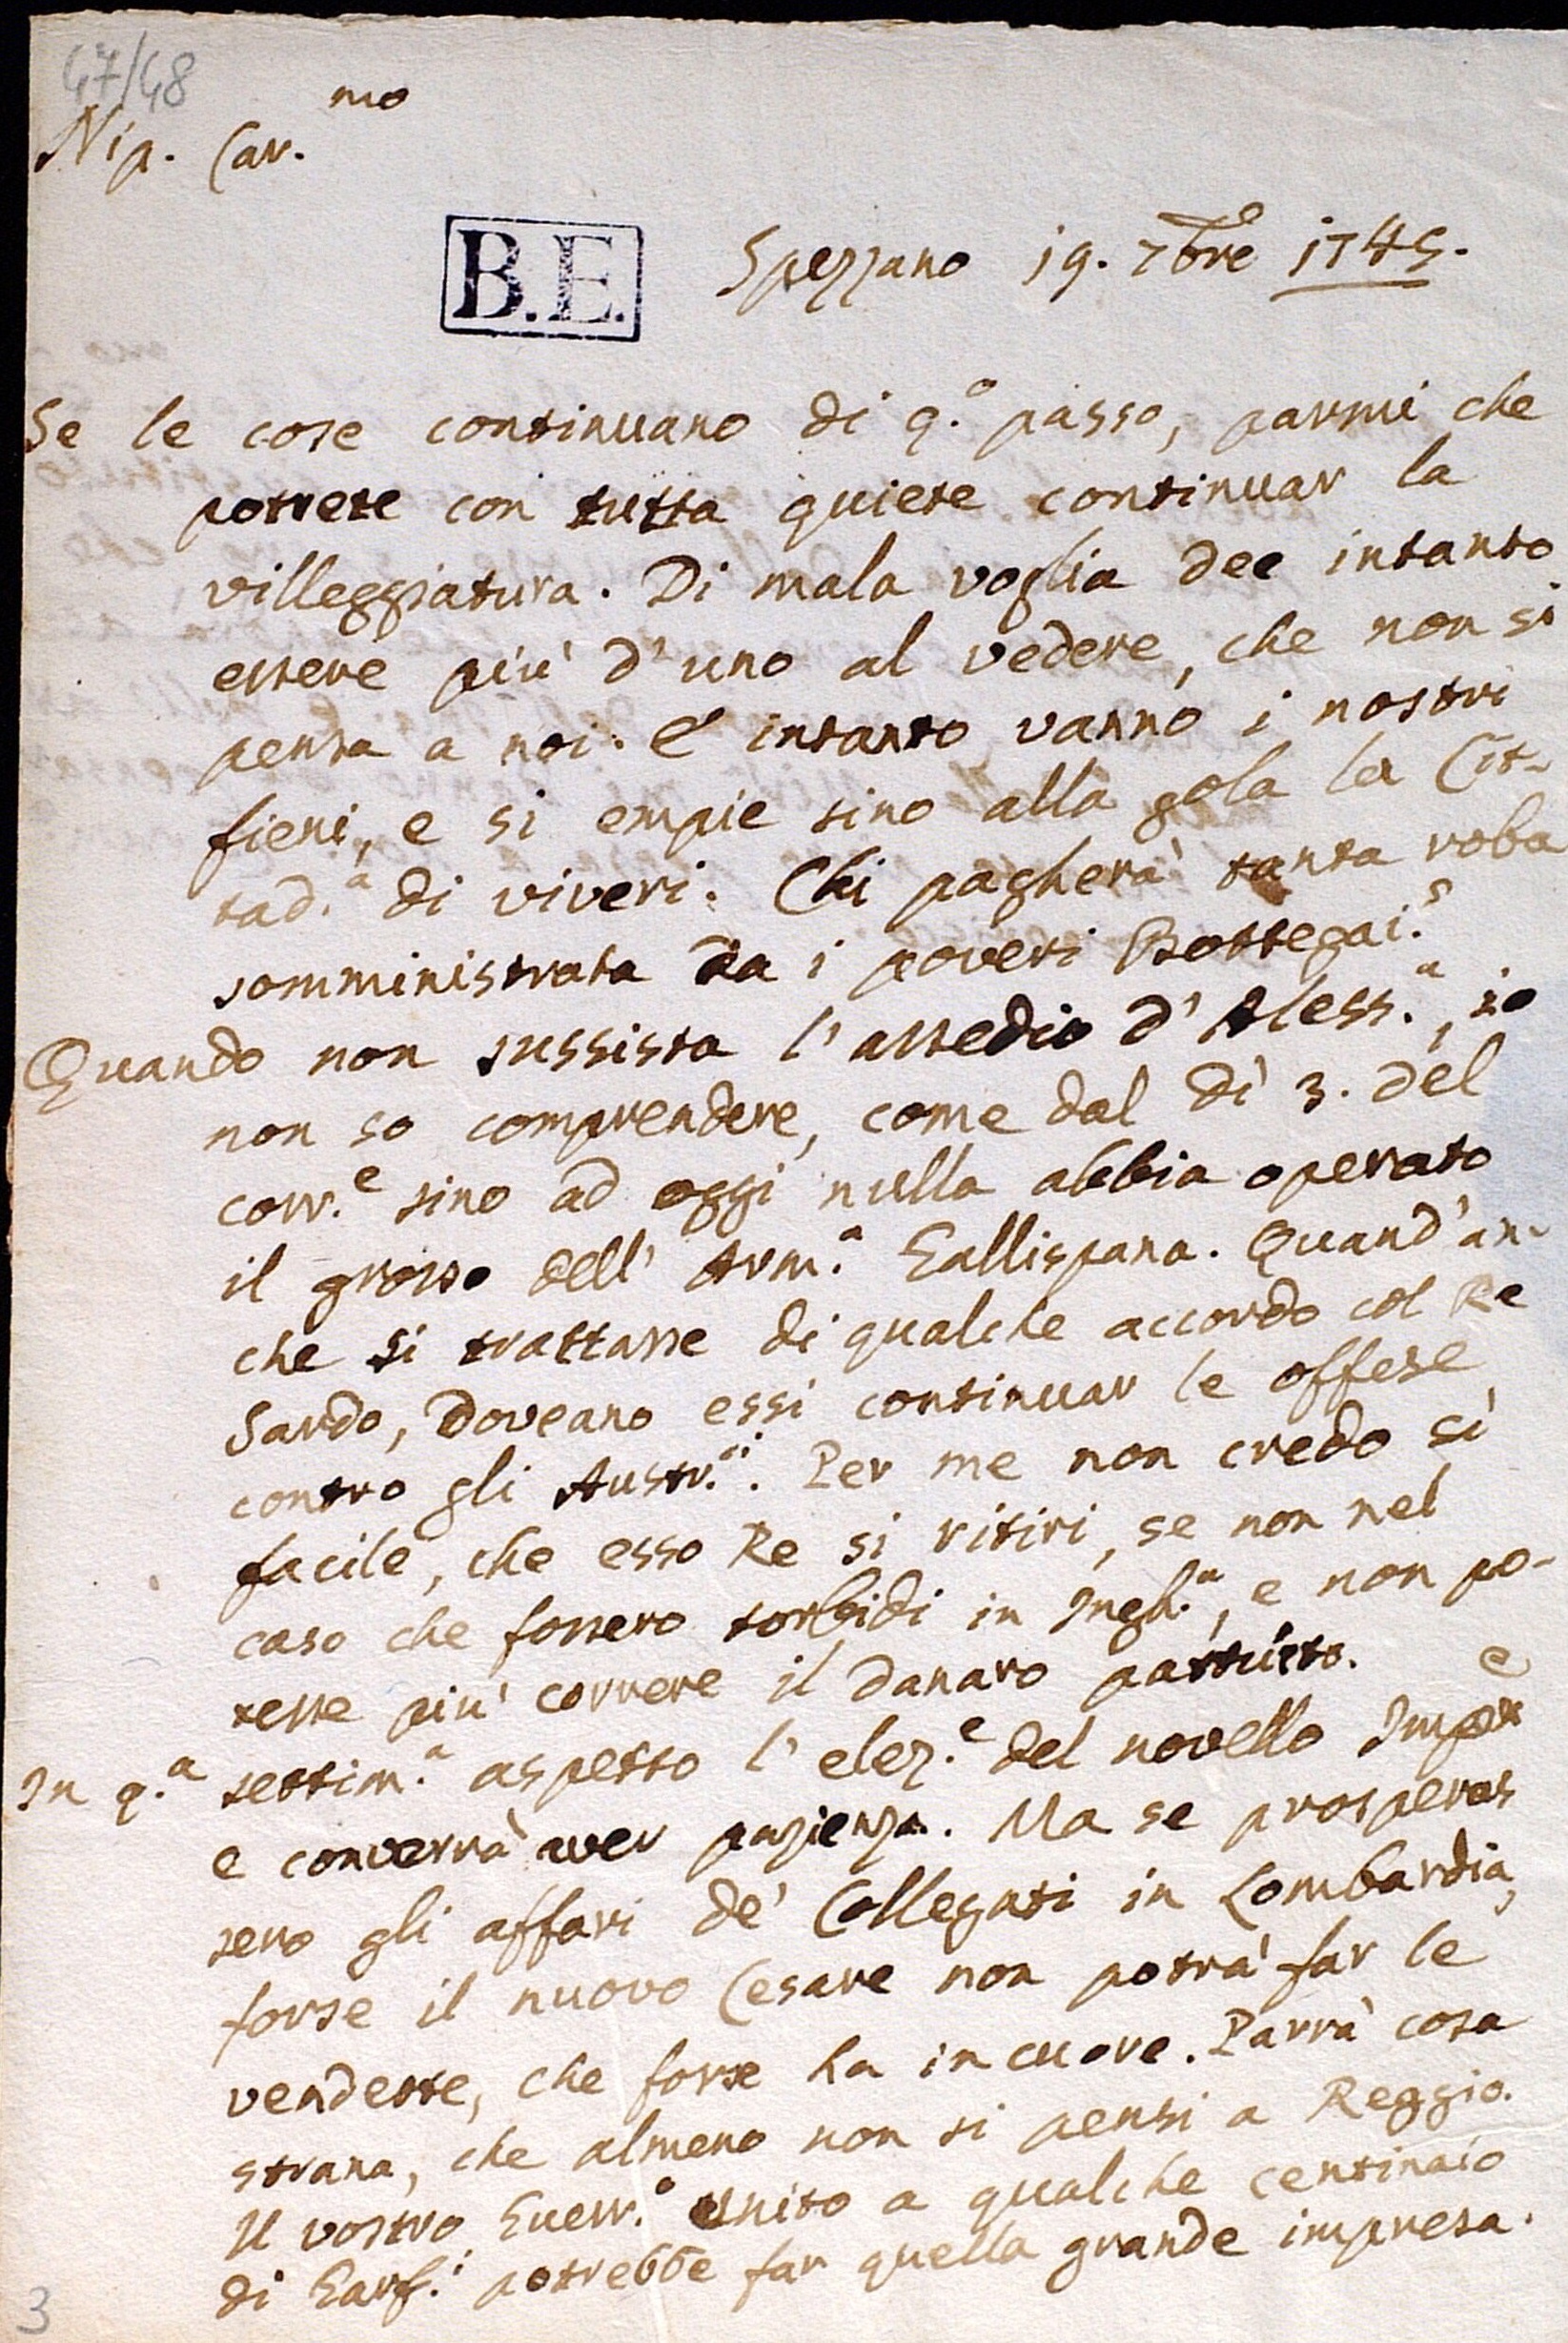 47/48
Nip. Car.mo
B.E.
Spezzano 19. 7bre 1745.
Se le cose continuano di q.o passo, parmi che
potrete con tutta quiete continuar la
villeggiatura. Di mala voglia dee intanto
essere più d'uno al vedere, che non si
pensa a noi. E intanto vanno i nostri
fieni, e si empie sino alla gola la Cit-
tad.a di viveri. Chi pagherà tanta roba
somministrata da i poveri Bottegai?
Quando non sussista l'assedio d'Aless.a, io
non so comprendere, come dal dì 3. del
corr.e sino ad oggi nulla abbia operato
il grosso dell'Arm.a Gallispana. Quand'an-
che si trattasse di qualche accordo col Re
Sardo, doveano essi continuar le offese
contro gli Austr.ci. Per me non credo sì
facile, che esso Re si ritiri, se non nel
caso che fossero torbidi in Ingh.a, e non po-
tesse più correre il danaro pattuito.
In q.a settim.a aspetto l'elez.e del novello Imp.e
e converrà aver pazienza. Ma se prosperas
sero gli affari de' Collegati in Lombardia,
forse il nuovo Cesare non potrà far le
vendette, che forse ha in cuore. Parrà cosa
strana, che almeno non si pensi a Reggio.
Il vostro Guerr.o unito a qualche centinaio
di Garf.i potrebbe far quella grande impresa.
3